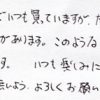 でいつも買っていますが、た
があります。このような
す。 いつも楽しみに
無いよう、よろしくお願い